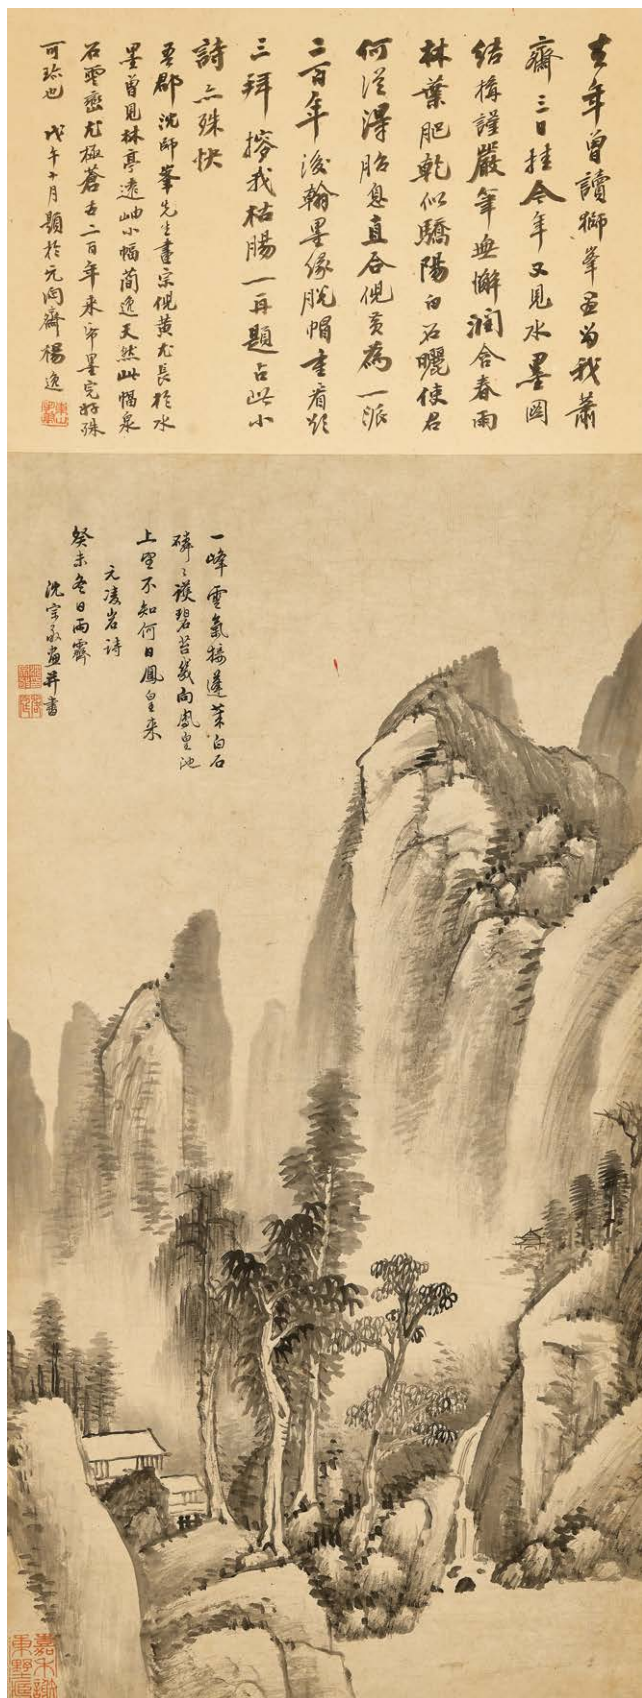 去年曾讀獅峯畫為我蕭
齋三日挂今年又見水墨圖
結構謹嚴筆無懈潤含春雨
林葉肥乾似驕陽白石曬使君
何從得胎息直合倪黃為一派
二百年後翰墨緣脫帽重看欲
三拜撐我枯腸一再題占此小
詩亦殊快
吾郡沈師峯先生畫宗倪黃尤長於水
墨曾見林亭遠岫小幅簡逸天然此幅泉
石雲巒尤極蒼古二百年來帋墨完好殊
可珍也 戊午十月題於元陶齋楊逸
一峰雲氣接蓬萊白石
磷々護碧苔幾向鳳皇池
上望不知何日鳳皇來
元凌岩詩
癸未冬日雨霽
沈宗敬畫并書
嘉禾謝
東野藏